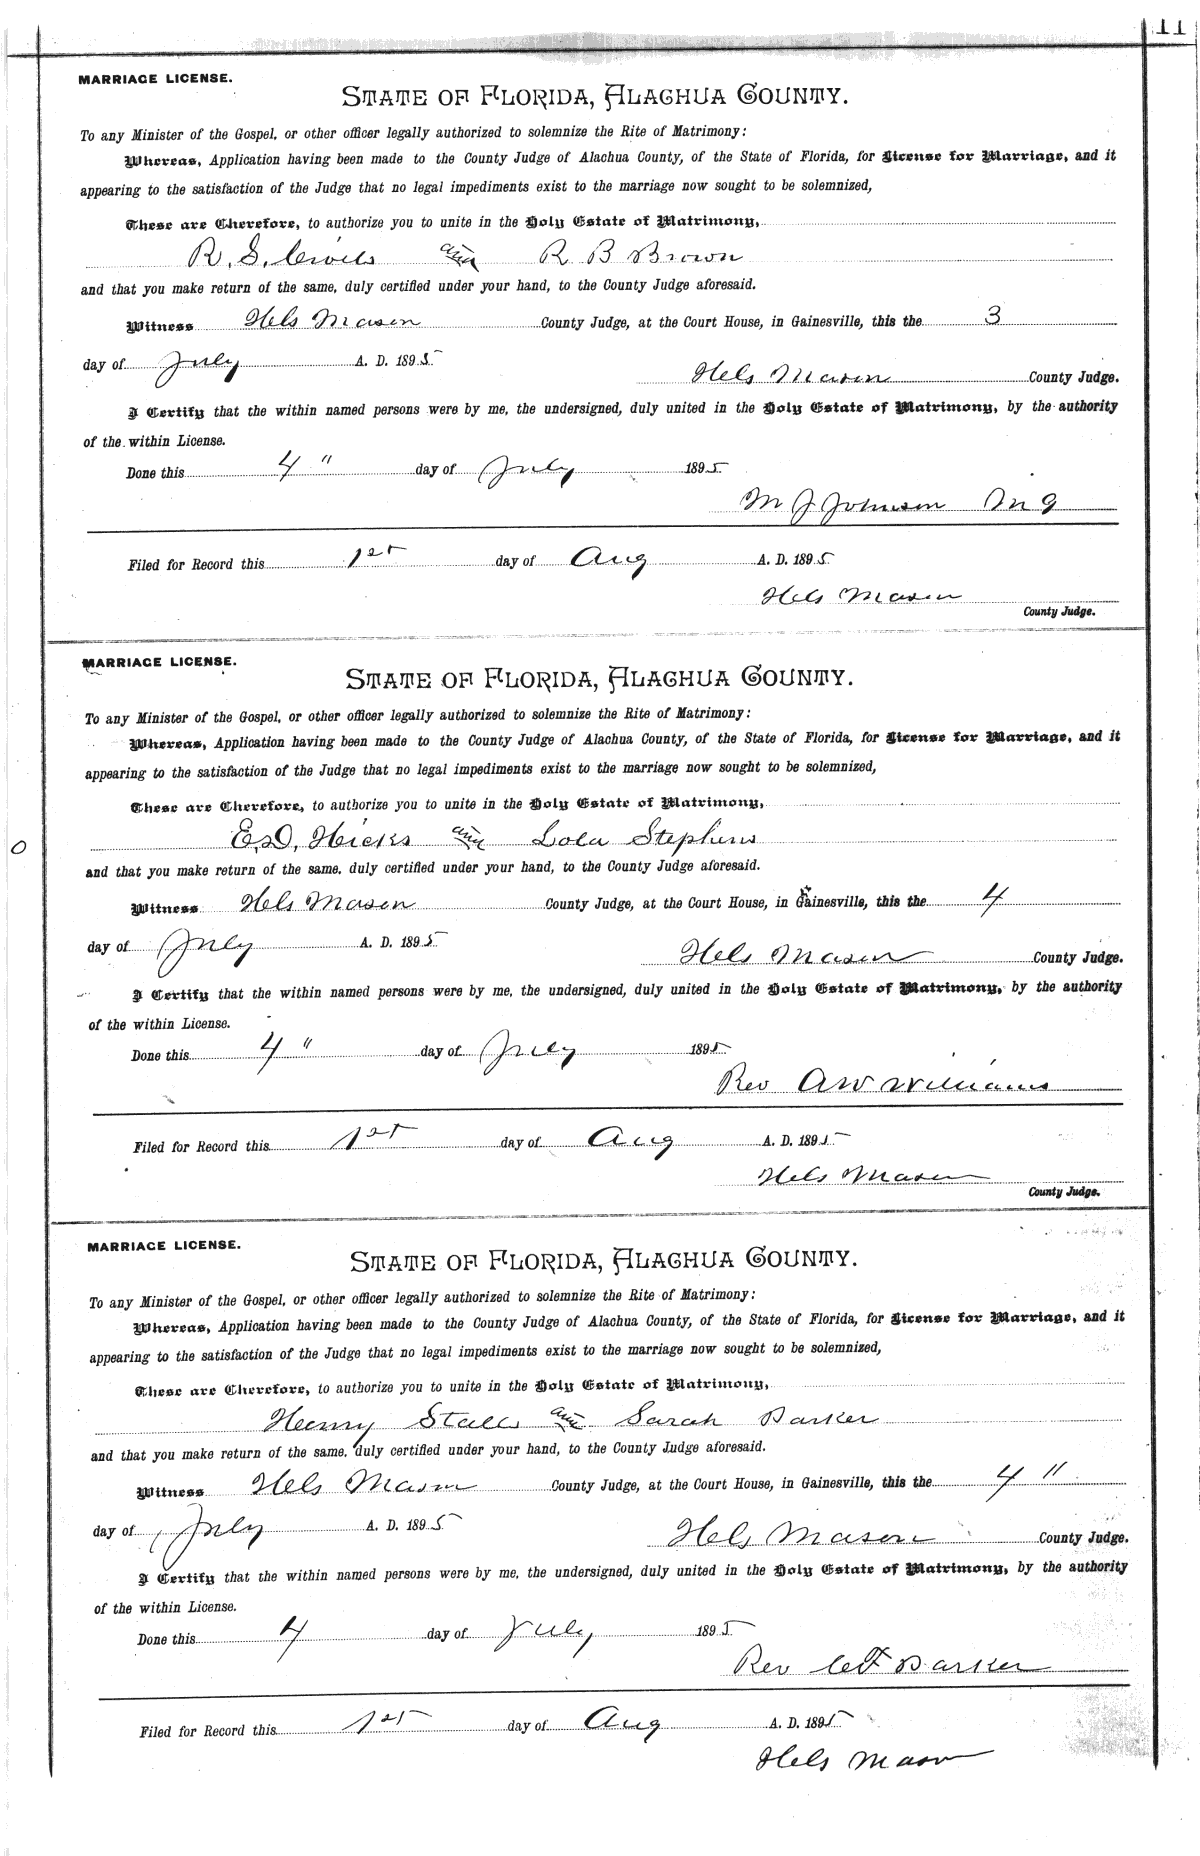 11
MARRIAGE LICENSE.
STATE OF FLORIDA, ALACHUA COUNTY.
To any Minister of the Gospel, or other officer legally authorized to solemnize the Rite of Matrimony:
Whereas, Application having been made to the County Judge of Alachua County, of the State of Florida, for License for Marriage, and it
appearing to the satisfaction of the Judge that no legal impediments exist to the marriage now sought to be solemnized,
These are Therefore, to authorize you to unite in the Holy Estate of Matrimony,
R. S. and R B Brown
and that you make return of the same, duly certified under your hand, to the County Judge aforesaid.
Witness Hels Mason County Judge, at the Court House, in Gainesville, this the 3
day of July A. D. 1895
Hels Mason County Judge.
I Certify that the within named persons were by me, the undersigned, duly united in the Holy Estate of Matrimony, by the authority
of the within License.
Done this 4 " day of July 1895
M J Johnson M G
Filed for Record this 1st day of Aug A. D. 1895
Hels Mason
County Judge.
MARRIAGE LICENSE.
STATE OF FLORIDA, ALACHUA COUNTY.
To any Minister of the Gospel, or other officer legally authorized to solemnize the Rite of Matrimony:
Whereas, Application having been made to the County Judge of Alachua County, of the State of Florida, for License for Marriage, and it
appearing to the satisfaction of the Judge that no legal impediments exist to the marriage now sought to be solemnized,
These are Therefore, to authorize you to unite in the Holy Estate of Matrimony,
E. D. Hicks and Lola Stephens
and that you make return of the same, duly certified under your hand, to the County Judge aforesaid.
Witness Hels Mason County Judge, at the Court House, in Gainesville, this the 4
day of July A. D. 1895
Hels Mason County Judge.
I Certify that the within named persons were by me, the undersigned, duly united in the Holy Estate of Matrimony, by the authority
of the within License.
Done this 4 " day of July 1895
Rev A W Williams
Filed for Record this 1st day of Aug A. D. 1895
Hels Mason
County Judge.
MARRIAGE LICENSE.
STATE OF FLORIDA, ALACHUA COUNTY.
To any Minister of the Gospel, or other officer legally authorized to solemnize the Rite of Matrimony:
Whereas, Application having been made to the County Judge of Alachua County, of the State of Florida, for License for Marriage, and it
appearing to the satisfaction of the Judge that no legal impediments exist to the marriage now sought to be solemnized,
These are Therefore, to authorize you to unite in the Holy Estate of Matrimony,
Henry Stalls and Sarah Barker
and that you make return of the same, duly certified under your hand, to the County Judge aforesaid.
Witness Hels Mason County Judge, at the Court House, in Gainesville, this the 4 "
day of July A. D. 1895
Hels Mason County Judge.
I Certify that the within named persons were by me, the undersigned, duly united in the Holy Estate of Matrimony, by the authority
of the within License.
Done this 4 day of July 1895
Rev Barker
Filed for Record this 1st day of Aug A. D. 1895
Hels Mason